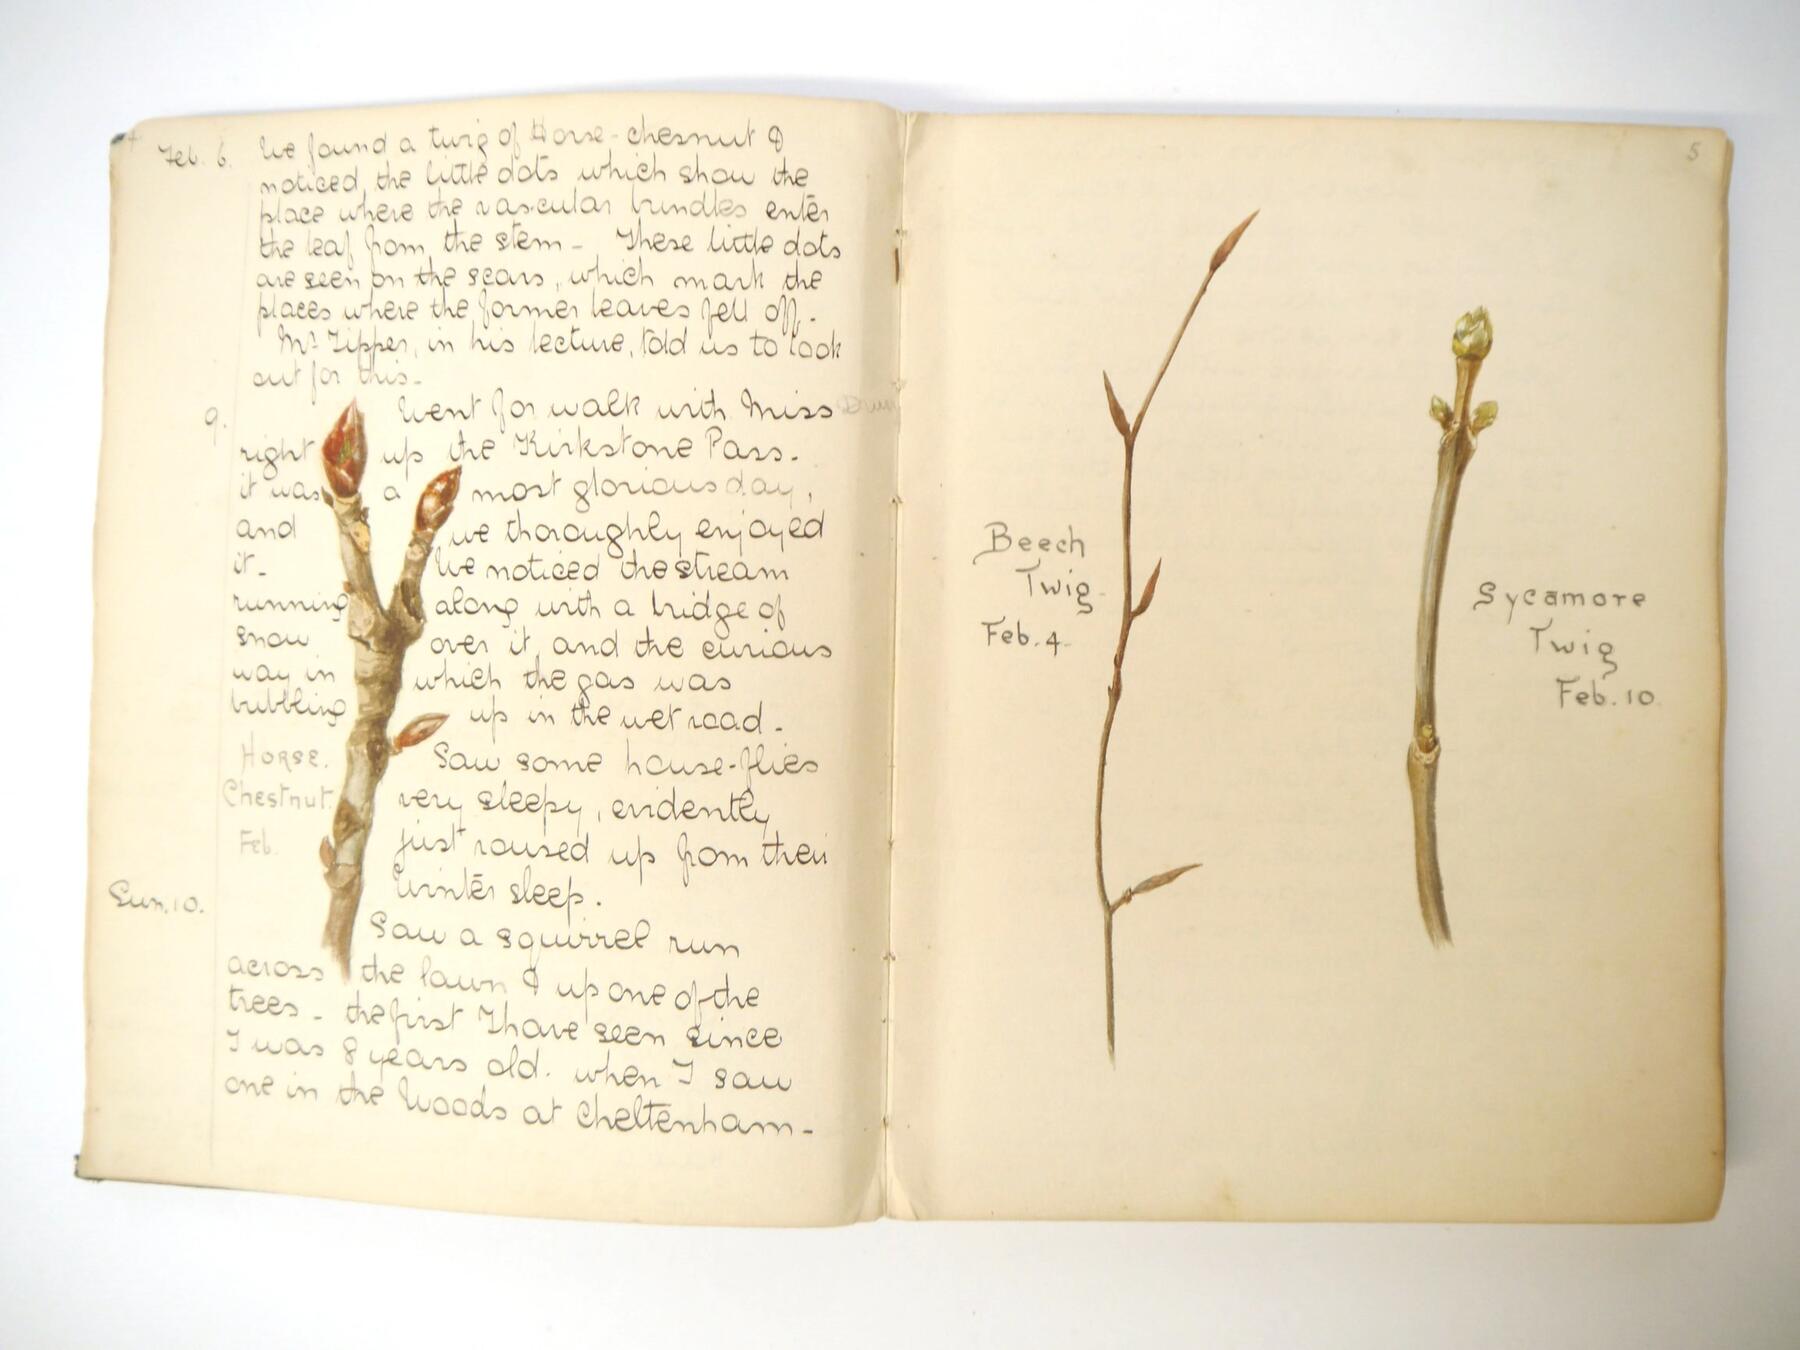 4
Feb. 6. We found a twig of Horse-chesnut &
noticed the little dots which show the
place where the vascular bundles enter
the leaf from the stem - These little dots
are seen on the scars, which mark the
places where the former leaves fell off.
Mr Tipper, in his lecture, told us to look
out for this.
9. Went for walk with Miss
right up the Kirkstone Pass.
it was a most glorious day,
and we thoroughly enjoyed
it. We noticed the stream
running along with a bridge of
snow over it, and the curious
way in which the gas was
bubbling up in the wet road.
Horse. Saw some house-flies
Chestnut. very sleepy, evidently
Feb. just roused up from their
winter sleep.
Sun. 10. Saw a squirrel run
across the lawn & up one of the
trees - the first I have seen since
I was 8 years old. when I saw
one in the Woods at Cheltenham -
5
Beech
Twig
Feb. 4.
Sycamore
Twig
Feb. 10.